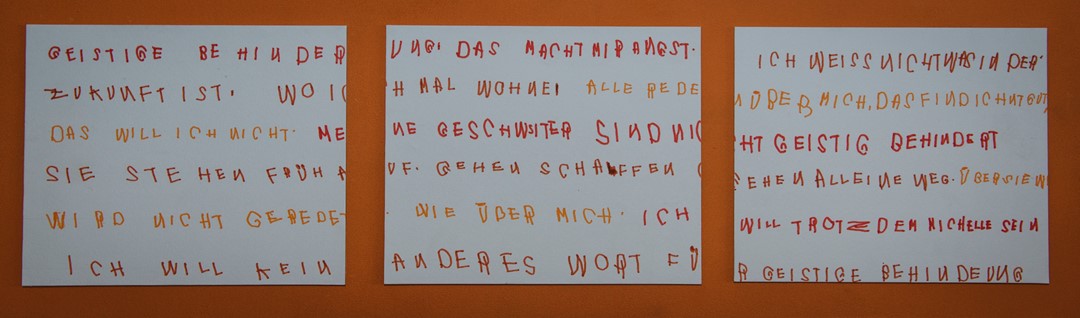 GEISTIGE BEHINDERUNG. DAS MACHT MIR ANGST. ICH WEISS NICHT WAS IN DER
ZUKUNFT IST. WO ICH MAL WOHNE! ALLE REDEN ÜBER MICH, DAS FIND ICH NT GUT,
DAS WILL ICH NICHT. MEINE GESCHWSITER SIND NICHT GEISTIG BEHINDERT
SIE STEHEN FRÜH AUF. GEHEN SCHAFFEN GEHEN ALLEINE WEG. ÜBER SIE W
WIRD NICHT GEREDET WIE ÜBER MICH. ICH WILL TROTZDEM MICHELLE SEIN
ICH WILL KEIN ANDERES WORT FÜR GEISTIGE BEHINDEUNG